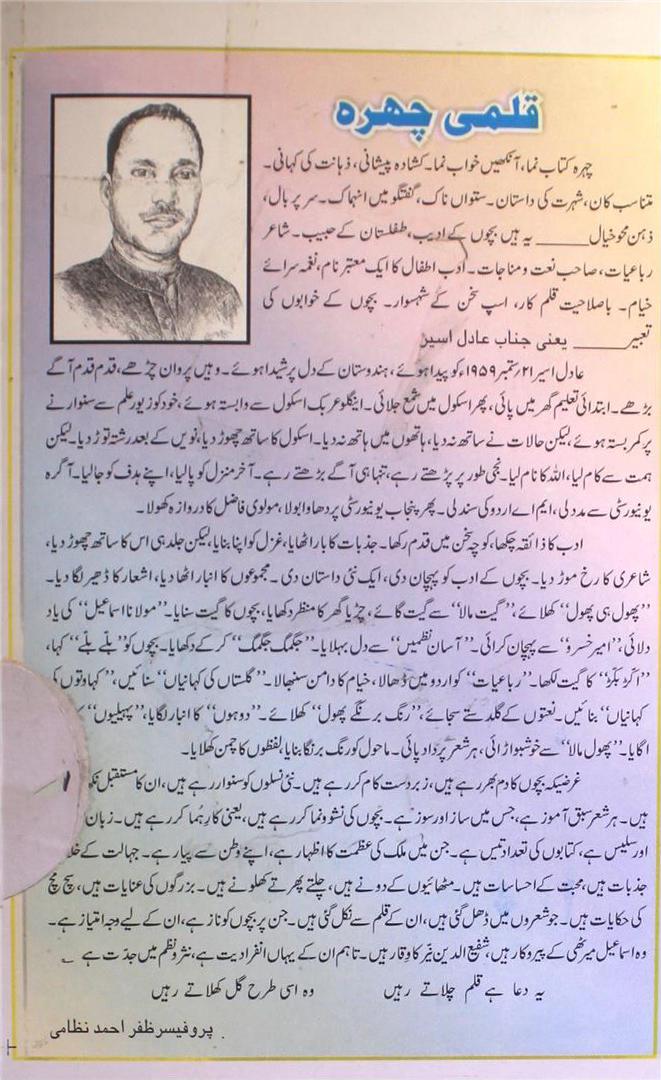 قلمی چہرہ
چہرہ کتاب نما، آنکھیں خواب نما۔ کشادہ پیشانی، ذہانت کی کہانی۔
متناسب کان، شہرت کی داستان۔ ستواں ناک، گفتگو میں انہماک۔ سر پر بال،
ذہن محو خیال ــــــــ یہ ہیں بچوں کے ادیب، طفلستان کے حبیب۔ شاعر
رباعیات، صاحب نعت و مناجات۔ ادب اطفال کا ایک معتبر نام، نغمہ سرائے
خیام۔ باصلاحیت قلم کار، اسپ سخن کے شہسوار۔ بچوں کے خوابوں کی
تعبیر ــــــــ یعنی جناب عادل اسیر
عادل اسیر ۲۱؍ستمبر ۱۹۵۹ء کو پیدا ہوئے، ہندوستان کے دل پر شیدا ہوئے۔ وہیں پروان چڑھے، قدم قدم آگے
بڑھے۔ ابتدائی تعلیم گھر میں پائی، پھر اسکول میں شمع جلائی۔ اینگلو عربک اسکول سے وابستہ ہوئے، خود کو زیور علم سے سنوارنے
پر کمر بستہ ہوئے، لیکن حالات نے ساتھ نہ دیا، ہاتھوں میں ہاتھ نہ دیا۔ اسکول کا ساتھ چھوڑ دیا، نویں کے بعد رشتہ توڑ دیا۔ لیکن
ہمت سے کام لیا، اللہ کا نام لیا۔ نجی طور پر پڑھتے رہے، تنہا ہی آگے بڑھتے رہے۔ آخر منزل کو پالیا، اپنے ہدف کو جالیا۔ آگرہ
یونیورسٹی سے مدد لی، ایم اے اردو کی سند لی۔ پھر پنجاب یونیورسٹی پر دھاوا بولا، مولوی فاضل کا دروازہ کھولا۔
ادب کا ذائقہ چکھا، کوچہ سخن میں قدم رکھا۔ جذبات کا بار اٹھایا، غزل کو اپنا بنایا، لیکن جلد ہی اس کا ساتھ چھوڑ دیا،
شاعری کا رخ موڑ دیا۔ بچوں کے ادب کو پہچان دی، ایک نئی داستان دی۔ مجموعوں کا انبار اٹھا دیا، اشعار کا ڈھیر لگا دیا۔
”پھول ہی پھول“ کھلائے، ”گیت مالا“ سے گیت گائے، چڑیا گھر کا منظر دکھایا، بچوں کا گیت سنایا۔ ”مولانا اسماعیل“ کی یاد
دلائی، ”امیر خسرو“ سے پہچان کرائی۔ ”آسان نظمیں“ سے دل بہلایا۔ ”جگمگ جگمگ“ کر کے دکھایا۔ بچوں کو ”بلّے بلّے“ کہا،
”اکڑ بکڑ“ کا گیت لکھا۔ ”رباعیات“ کو اردو میں ڈھالا، خیام کا دامن سنبھالا۔ ”گلستاں کی کہانیاں“ سنائیں، ”کہاوتوں کی
کہانیاں“ بنائیں۔ نعتوں کے گلدستے سجائے، ”رنگ برنگے پھول“ کھلائے۔ ”دوہوں“ کا انبار لگایا، ”پہیلیوں“
اگایا۔ ”پھول مالا“ سے خوشبو اڑائی، ہر شعر پر داد پائی۔ ماحول کو رنگ برنگا بنایا، لفظوں کا چمن کھلایا۔
غرضیکہ بچوں کا دم بھر رہے ہیں، زبردست کام کر رہے ہیں۔ نئی نسلوں کو سنوار رہے ہیں، ان کا مستقبل
ہیں۔ ہر شعر سبق آموز ہے، جس میں ساز اور سوز ہے۔ بچوں کی نشوونما کر رہے ہیں، یعنی کارہُما کر رہے ہیں۔ زبان
اور سلیس ہے، کتابوں کی تعداد تیس ہے۔ جن میں ملک کی عظمت کا اظہار ہے، اپنے وطن سے پیار ہے۔ جہالت کے
جذبات ہیں، محبت کے احساسات ہیں۔ مٹھائیوں کے دونے ہیں، چلتے پھرتے کھلونے ہیں۔ بزرگوں کی عنایات ہیں، سچ مچ
کی حکایات ہیں۔ جو شعروں میں ڈھل گئی ہیں، ان کے قلم سے نکل گئی ہیں۔ جن پر بچوں کو ناز ہے، ان کے لیے وجہ امتیاز ہے۔
وہ اسماعیل میرٹھی کے پیروکار ہیں، شفیع الدین نیّر کا وقار ہیں۔ تاہم ان کے یہاں انفرادیت ہے، نثر و نظم میں جدّت ہے ؂
یہ دعا ہے قلم چلاتے رہیں وہ اسی طرح گل کھلاتے رہیں
پروفیسر ظفر احمد نظامی